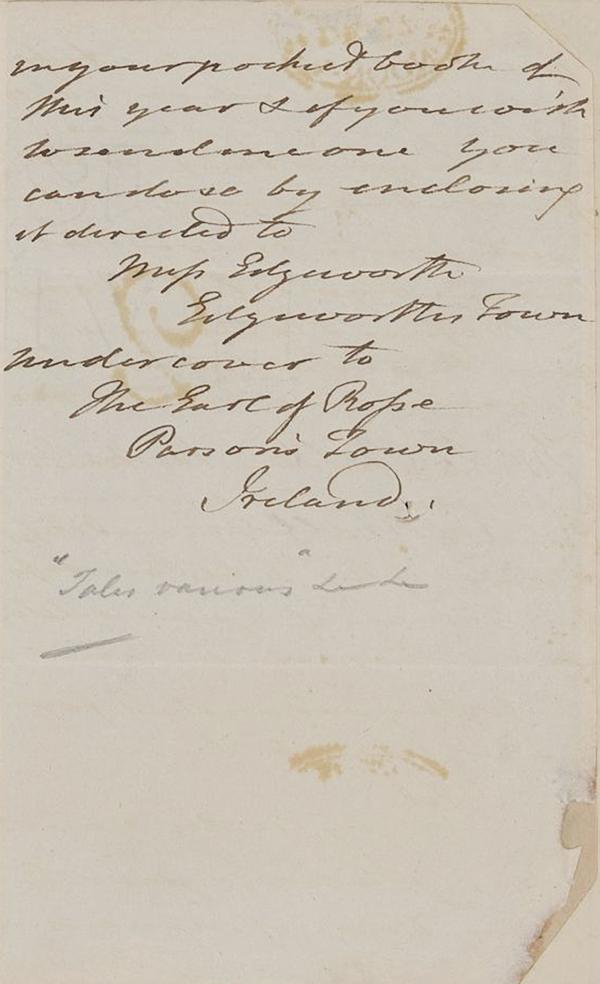 in your pocket book of
this year & if you wish
to send me one you
can do so by enclosing
it directed to
Miss Edgeworth
Edgeworths Town
under cover to
The Earl of Rosse
Parson's Town
Ireland.
"Tales various"